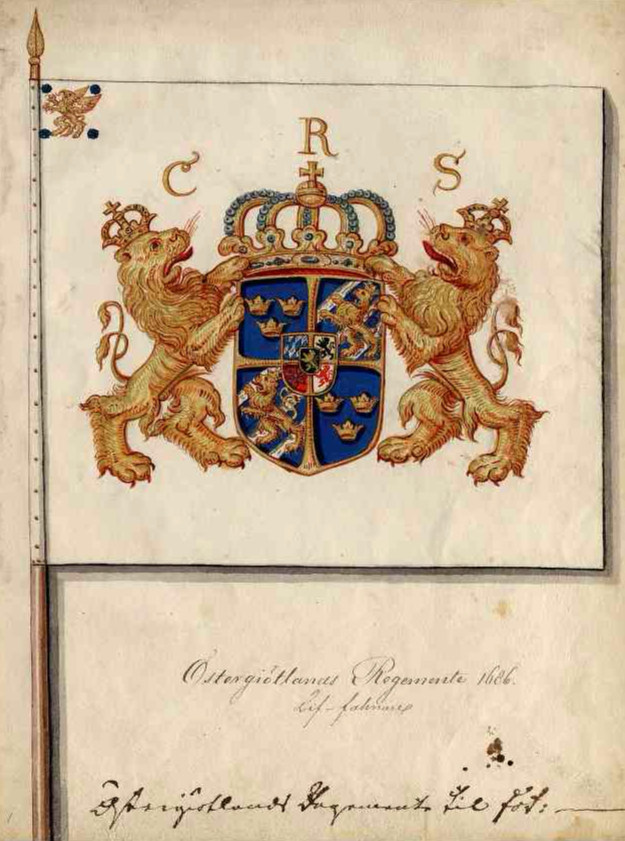 C R S
Östergiötlands Regemente 1686.
Lif-fahnans
Östergiötlands Regemente til fot: